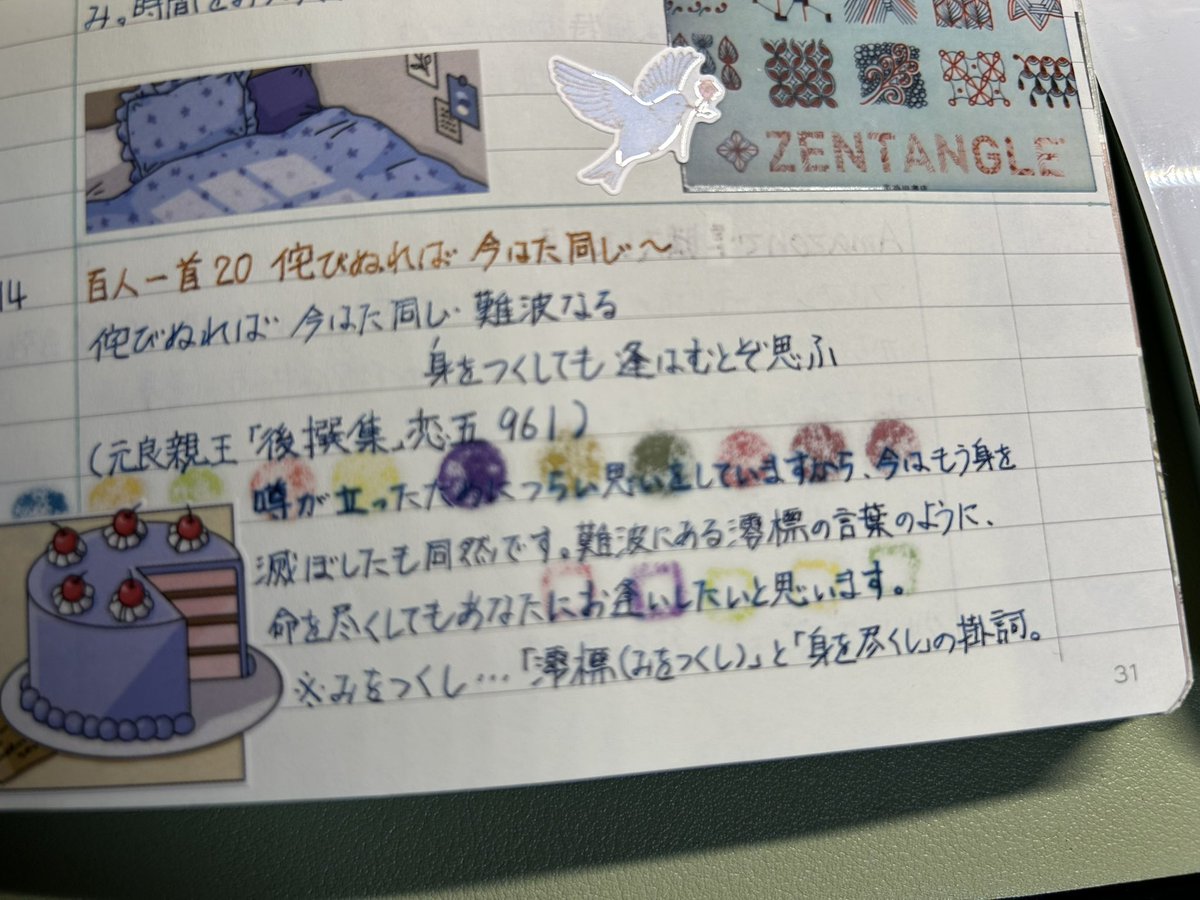 み。時間を
ZENTANGLE
百人一首20 侘びぬれば 今はた同じ〜
14
侘びぬれば 今はた同じ 難波なる
身をつくしても 逢はむとぞ思ふ
(元良親王「後撰集」恋五 961)
噂が立ったためにつらい思いをしていますから、今はもう身を
滅ぼしたも同然です。難波にある澪標の言葉のように、
命を尽くしてもあなたにお逢いしたいと思います。
※みをつくし…「澪標(みをつくし)」と「身を尽くし」の掛詞。
31